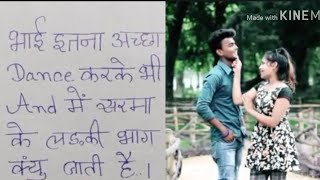 Made with KINEM
भाई इतना अच्छा
Dance करके भी
And में शरमा
के लडकी भाग
क्यु जाती है..।